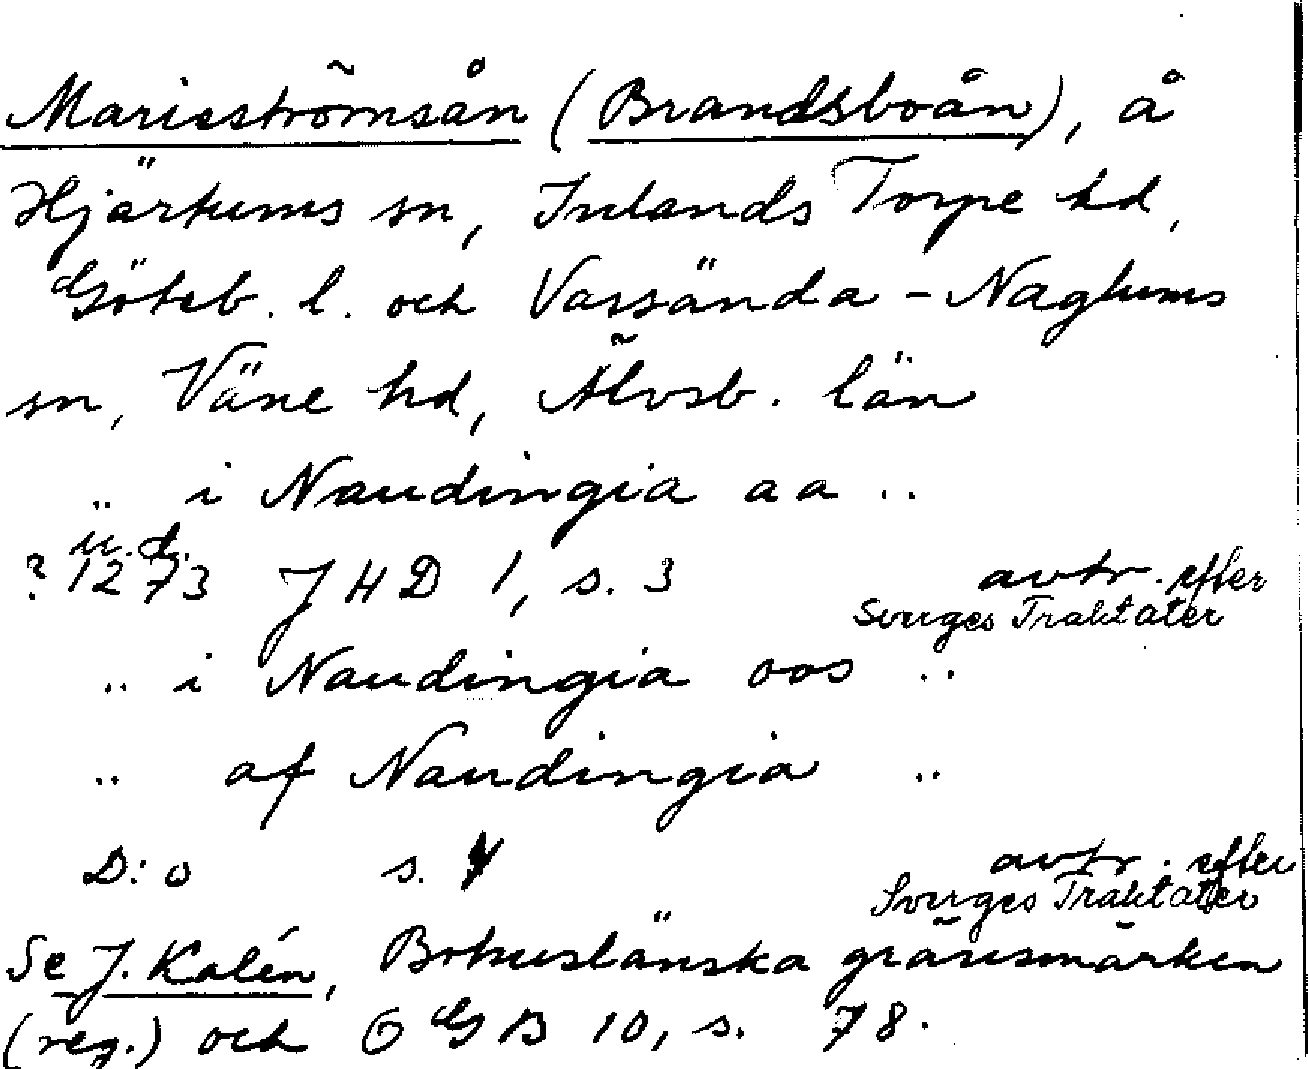 Marieströmsån (Brandsboån), å
Hjärtums sn, Inlands Torpe hd,
Göteb. l. och Vassända-Naglums
sn, Väne hd, Älvsb. län
.. i Naudingia aa ..
u. d.
? 1273 JHD 1, s. 3 avtr. efter
Sveriges Traktater
.. i Naudingia oos ..
.. af Naudingia ..
D:o s. 4 avtr. efter
Sveriges Traktater
Se J. Kalén, Bohuslänska gränsmärken
(reg.) och OGB 10, s. 78.